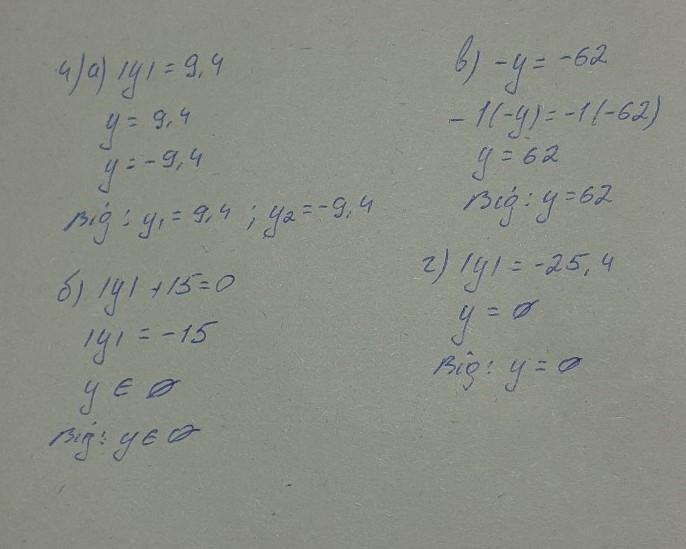 4) а) |y| = 9,4
y = 9,4
y = -9,4
Від: y₁ = 9,4 ; y₂ = -9,4
б) |y| + 15 = 0
|y| = -15
y ∈ ∅
Від: y ∈ ∅
в) -y = -62
-1(-y) = -1(-62)
y = 62
Від: y = 62
г) |y| = -25,4
y = ∅
Від: y = ∅